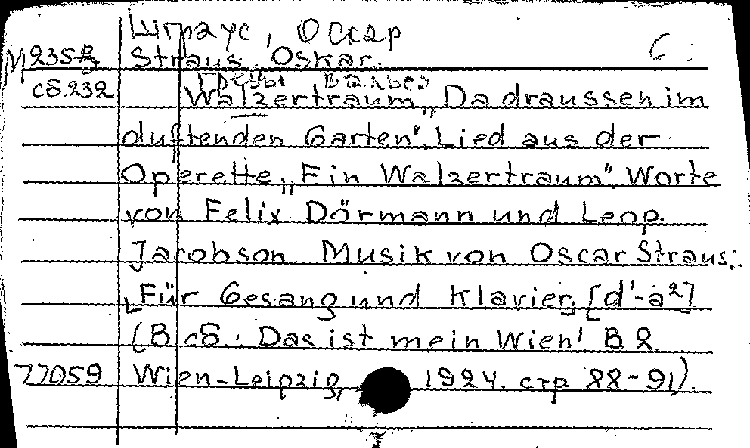 Штраус, Оскар
М235В Straus, Oskar. С.
Грезы вальса
сб.232 Walzertraum „Da draussen im
duftenden Garten". Lied aus der
Operette „Ein Walzertraum". Worte
von Felix Dörmann und Leop.
Jacobson Musik von Oscar Straus.
Für Gesang und Klavier. [d'-a²]
(В сб.: Das ist mein Wien! B. 2.
77059 Wien-Leipzig, 1924. стр 88-91).